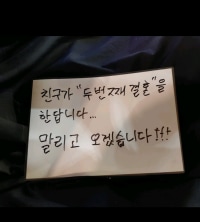 친구가 "두번째 결혼"을
한답니다...
말리고 오겠습니다!!!